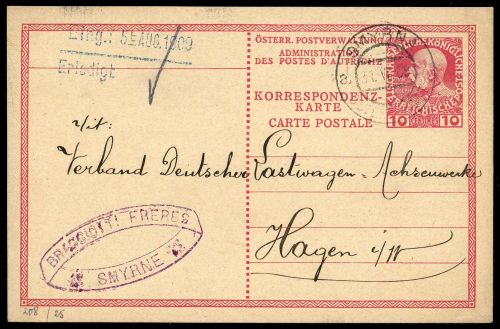 Eing.: 5 AUG. 1909
Erledigt
ÖSTERR. POSTVERWALTUNG
ADMINISTRATION
DES POSTES D'AUTRICHE
KORRESPONDENZ-
KARTE
CARTE POSTALE
SMYRNA
10 10
p/t:
Verband Deutscher Lastwagen-Achsenwerke
Hagen i/W.
BRAGGIOTTI FRERES
SMYRNE
208 / 25